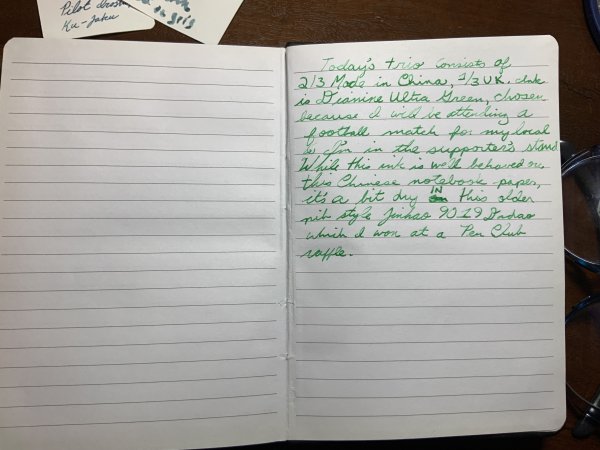 Pilot Iroshi
Ku-jaku
Today's trio consists of
2/3 Made in China, 1/3 UK. Ink
is Diamine Ultra Green, chosen
because I will be attending a
football match for my local
I'm in the supporter's stand
While this ink is well behaved on
this Chinese notebook paper,
it's a bit dry IN this older
nib style Jinhao 9019 Dadao
which I won at a Pen Club
raffle.